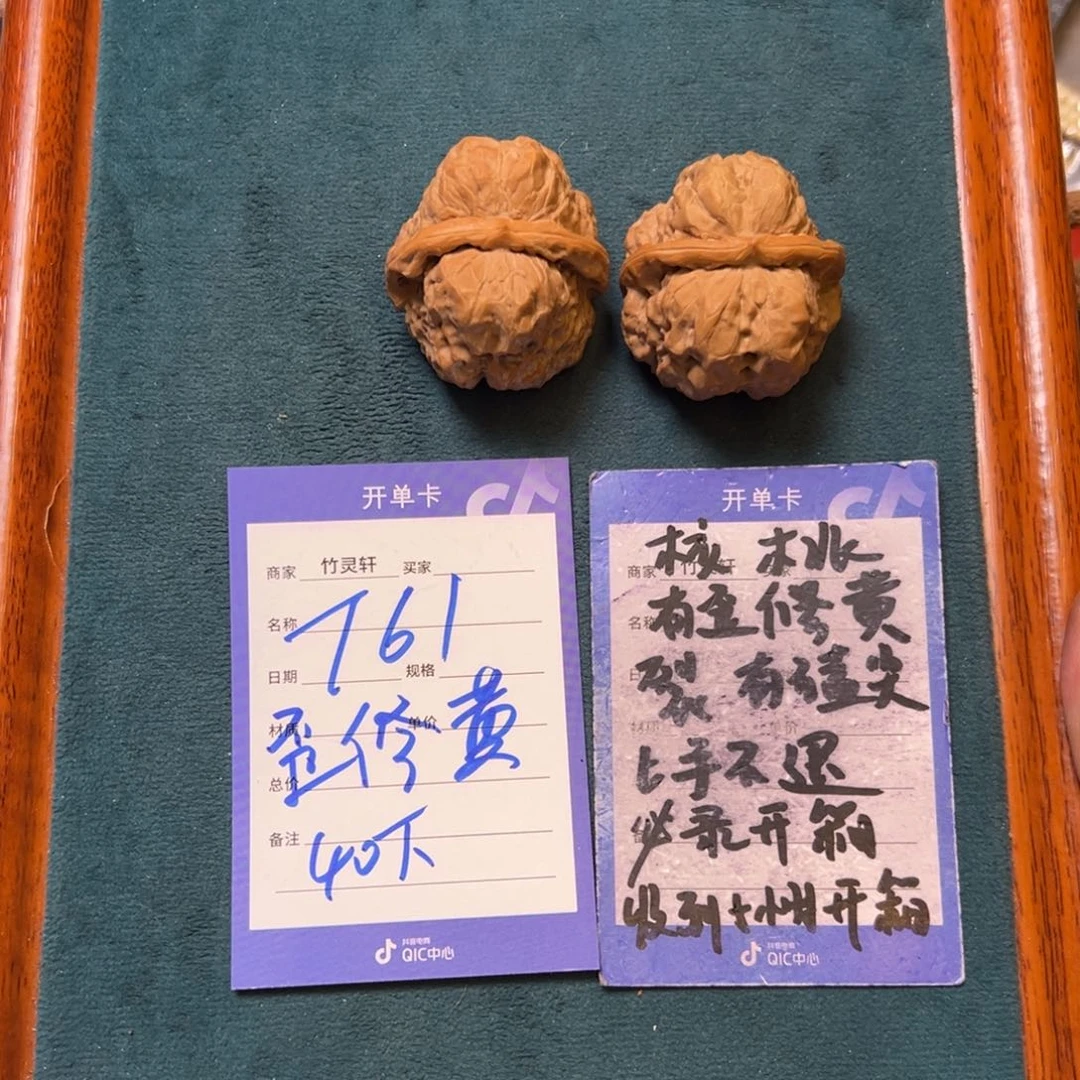 开单卡
商家 竹灵轩 买家
名称
761
日期 规格
材质 单价
歪修黄
总价
备注
40下
抖音电商
QIC中心
开单卡
核桃
商家
有歪修黄
名称
裂 有磕尖
上手不退
必录开箱
收到+小时开箱
抖音电商
QIC中心